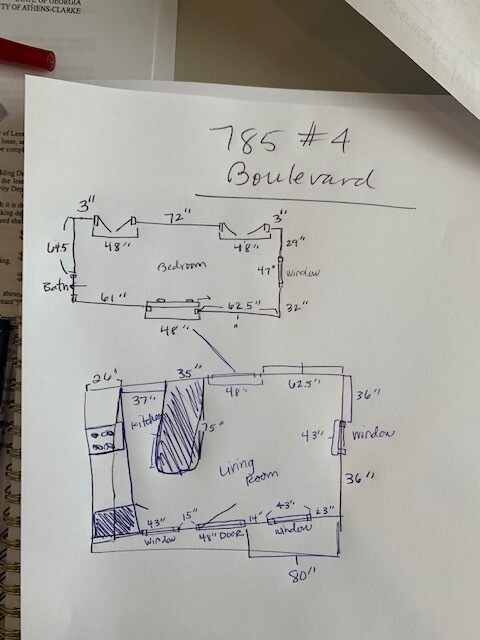 STATE OF GEORGIA
TY OF ATHENS-CLARKE
785 #4
Boulevard
3" 72" 3"
48" 48" 29"
64.5 Bedroom 47" window
Bath 61" 62.5" 32"
48"
26" 35" 62.5"
37" 48" 36"
Kitchen 75" 43" window
Living
Room 36"
43" 15" 14" 43" 23"
window 48" DOOR window
80"